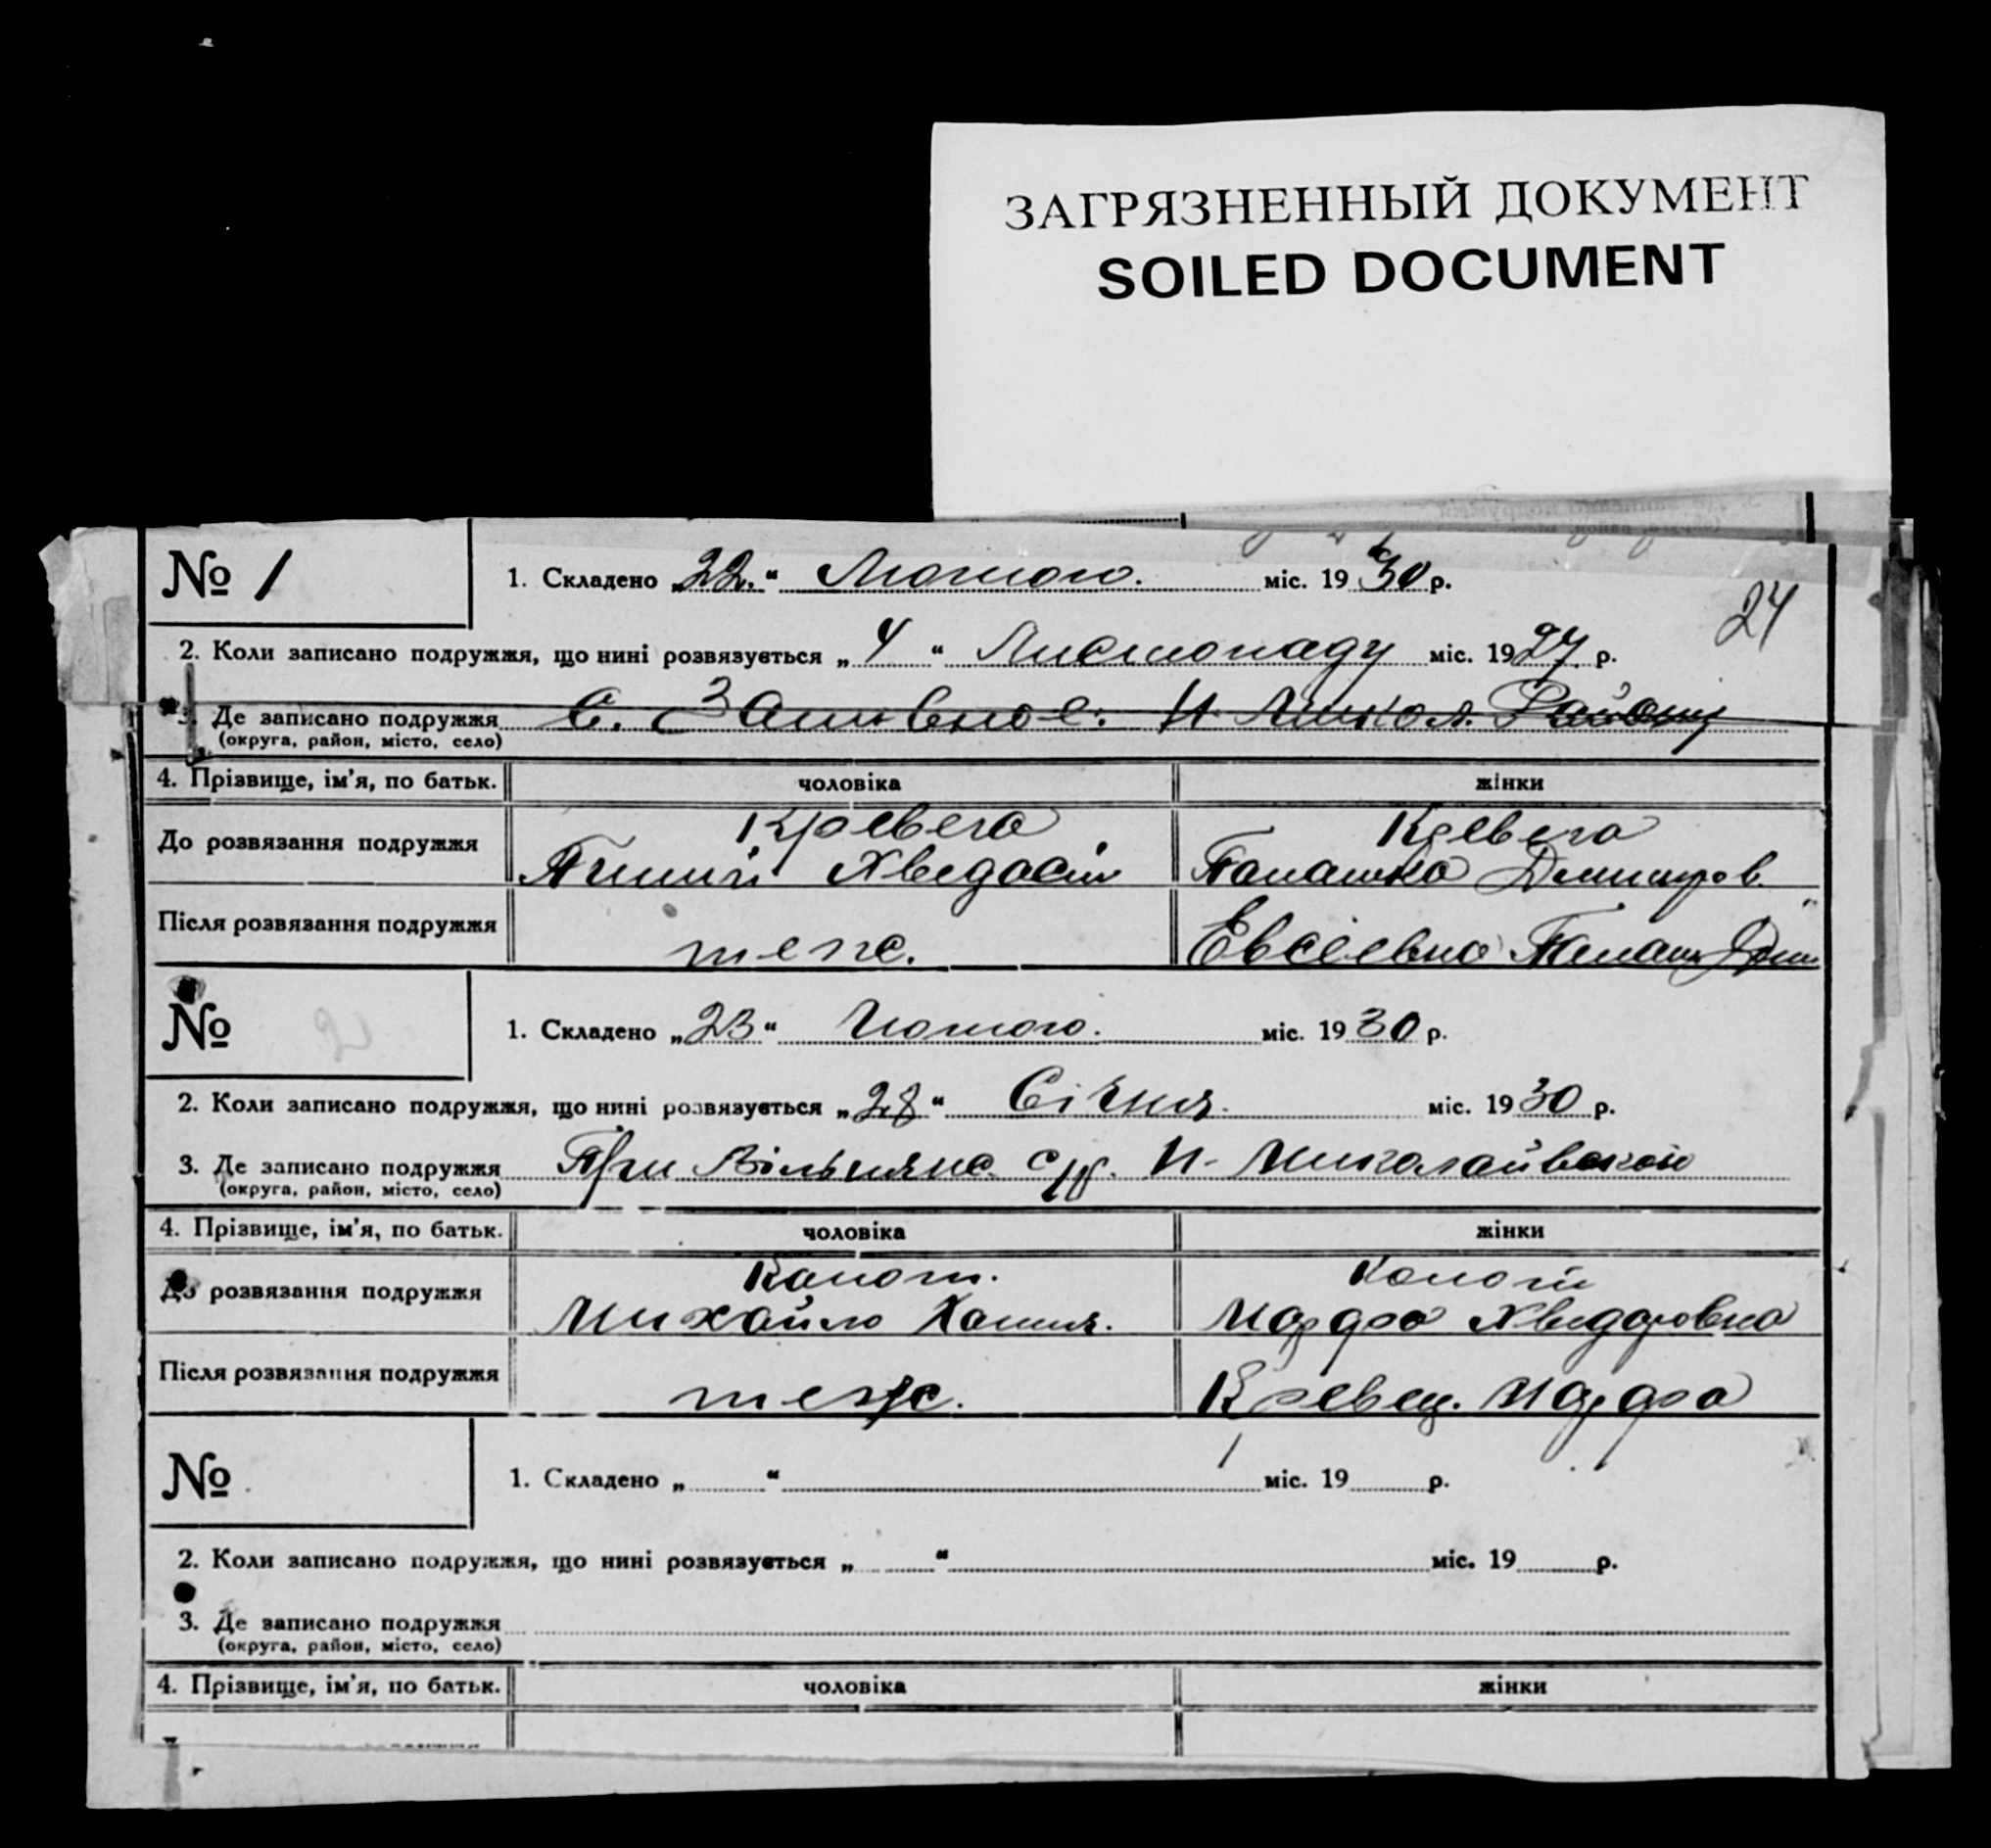 ЗАГРЯЗНЕННЫЙ ДОКУМЕНТ
SOILED DOCUMENT
24
№ 1
1. Складено „22.“ Лютого. міс. 1930 р.
2. Коли записано подружжя, що нині розвязується „4“ Листопаду міс. 1927 р.
3. Де записано подружжя С. Району
(округа, район, місто, село)
4. Прізвище, ім'я, по батьк. чоловіка жінки
До розвязання подружжя Кревега Кревега
Хведосів Палашка Дмитров.
Після розвязання подружжя теж. Евсеевна Палаш Дми
№
1. Складено „23“ Лютого. міс. 1930 р.
2. Коли записано подружжя, що нині розвязується „28“ Січня. міс. 1930 р.
3. Де записано подружжя При с/р. Н-Миколаївской
(округа, район, місто, село)
4. Прізвище, ім'я, по батьк. чоловіка жінки
До розвязання подружжя
Михайло Марфа Хведоровна
Після розвязання подружжя теж. Кревец. Марфа
№
1. Складено „ “ міс. 19 р.
2. Коли записано подружжя, що нині розвязується „ “ міс. 19 р.
3. Де записано подружжя
(округа, район, місто, село)
4. Прізвище, ім'я, по батьк. чоловіка жінки